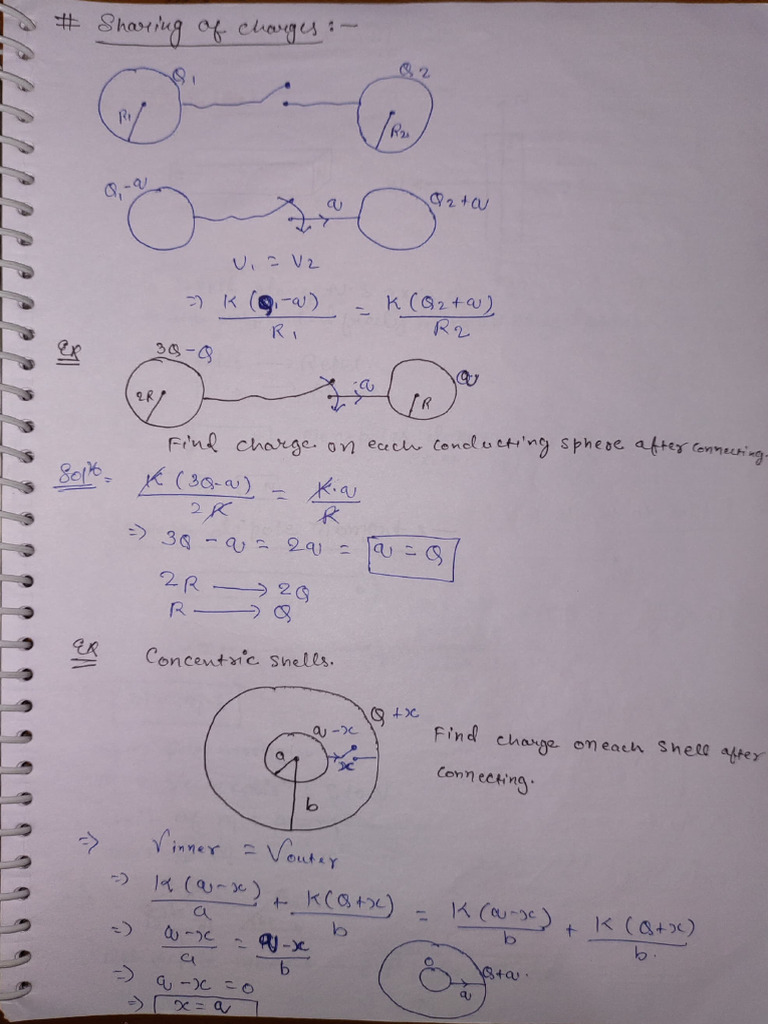 # Sharing of charges :-
Q1 Q2
R1 R2
Q1-q q Q2+q
V1 = V2
=> K(Q1-q)/R1 = K(Q2+q)/R2
Ex 3Q-q q q
2R R
Find charge on each conducting sphere after connecting.
Solⁿ = K(3Q-q)/2R = K.q/R
=> 3Q - q = 2q = q = Q
2R → 2Q
R → Q
Ex Concentric shells.
Q+x
q-x
a x
b
Find charge on each shell after
connecting.
=> Vinner = Vouter
=> K(q-x)/a + K(Q+x)/b = K(q-x)/b + K(Q+x)/b.
=> q-x/a = q-x/b
=> q-x = 0
=> x = q
0 q Q+q.